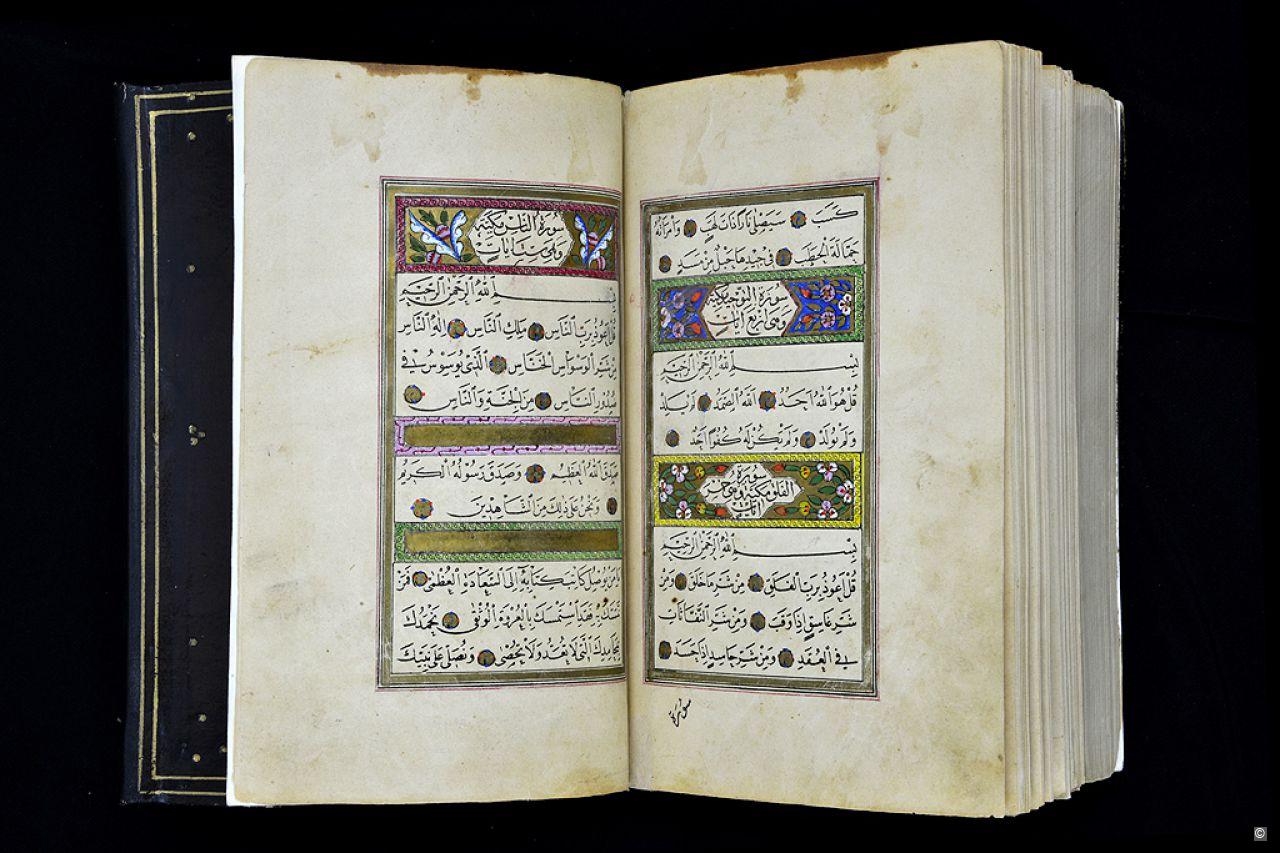 كَسَبَ سَيَصْلٰى نَارًا ذَاتَ لَهَبٍ وَامْرَاَتُهُ
حَمَّالَةَ الْحَطَبِ فٖي جٖيدِهَا حَبْلٌ مِنْ مَسَدٍ
سورة التوحيد مكية
وهي اربع ايات
بِسْمِ اللّٰهِ الرَّحْمٰنِ الرَّحٖيمِ
قُلْ هُوَ اللّٰهُ اَحَدٌ اَللّٰهُ الصَّمَدُ لَمْ يَلِدْ
وَلَمْ يُولَدْ وَلَمْ يَكُنْ لَهُ كُفُوًا اَحَدٌ
سورة
الفلق مكية وهي خمس
ايات
بِسْمِ اللّٰهِ الرَّحْمٰنِ الرَّحٖيمِ
قُلْ اَعُوذُ بِرَبِّ الْفَلَقِ مِنْ شَرِّ مَا خَلَقَ وَمِنْ
شَرِّ غَاسِقٍ اِذَا وَقَبَ وَمِنْ شَرِّ النَّفَّاثَاتِ
فِي الْعُقَدِ وَمِنْ شَرِّ حَاسِدٍ اِذَا حَسَدَ
سورة
سورة الناس مكية
وهي ست ايات
بِسْمِ اللّٰهِ الرَّحْمٰنِ الرَّحٖيمِ
قُلْ اَعُوذُ بِرَبِّ النَّاسِ مَلِكِ النَّاسِ اِلٰهِ النَّاسِ
مِنْ شَرِّ الْوَسْوَاسِ الْخَنَّاسِ اَلَّذٖي يُوَسْوِسُ فٖي
صُدُورِ النَّاسِ مِنَ الْجِنَّةِ وَالنَّاسِ
صَدَقَ اللّٰهُ الْعَظٖيمُ وَصَدَقَ رَسُولُهُ الْكَرٖيمُ
وَنَحْنُ عَلٰى ذٰلِكَ مِنَ الشَّاهِدٖينَ
يَا مَنْ وَصَلَ كِتَابُهُ اِلَى السَّعَادَةِ الْعُظْمٰى فَمَنْ
تَمَسَّكَ بِهِ فَقَدِ اسْتَمْسَكَ بِالْعُرْوَةِ الْوُثْقٰى نَحْمَدُكَ
بِمَحَامِدِكَ الَّتٖي لَا تُعَدُّ وَلَا تُحْصٰى وَنُصَلّٖي عَلٰى نَبِيِّكَ
©